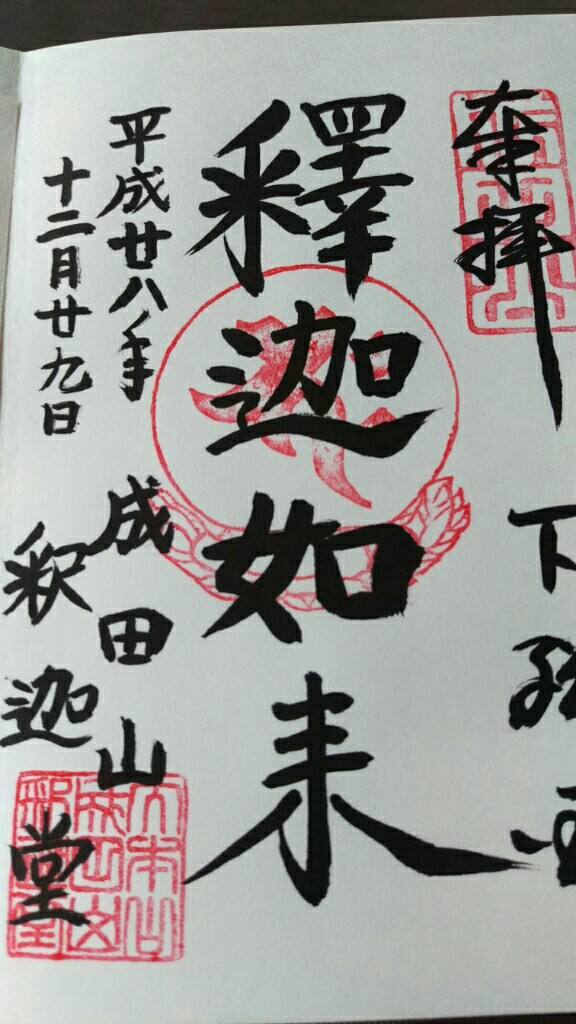 奉拝
下総国
釋迦如来
平成廿八年
十二月廿九日
成田山
釈迦堂